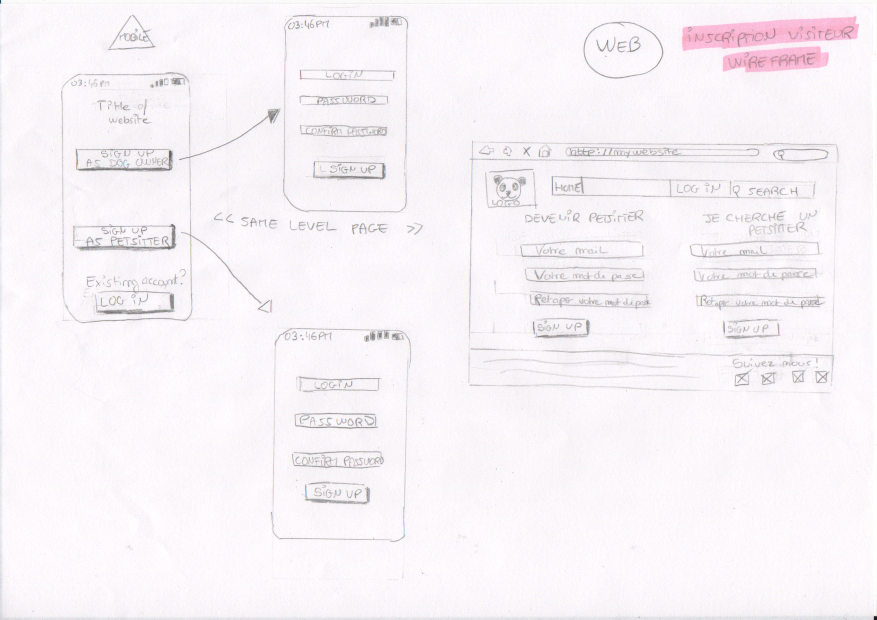 MOBILE
03:46PM
Title of
website
SIGN UP
AS DOG OWNER
SIGN UP
AS PETSITTER
Existing account?
LOG IN
03:46PM
LOGIN
PASSWORD
CONFIRM PASSWORD
SIGN UP
<< SAME LEVEL PAGE >>
03:46PM
LOGIN
PASSWORD
CONFIRM PASSWORD
SIGN UP
WEB
INSCRIPTION VISITEUR
WIREFRAME
http://mywebsite
LOGO
HOME
LOG IN
SEARCH
DEVENIR PETSITTER
Votre mail
Votre mot de passe
Retaper votre mot de passe
SIGN UP
JE CHERCHE UN
PETSITTER
Votre mail
Votre mot de passe
Retaper votre mot de passe
SIGN UP
Suivez nous!